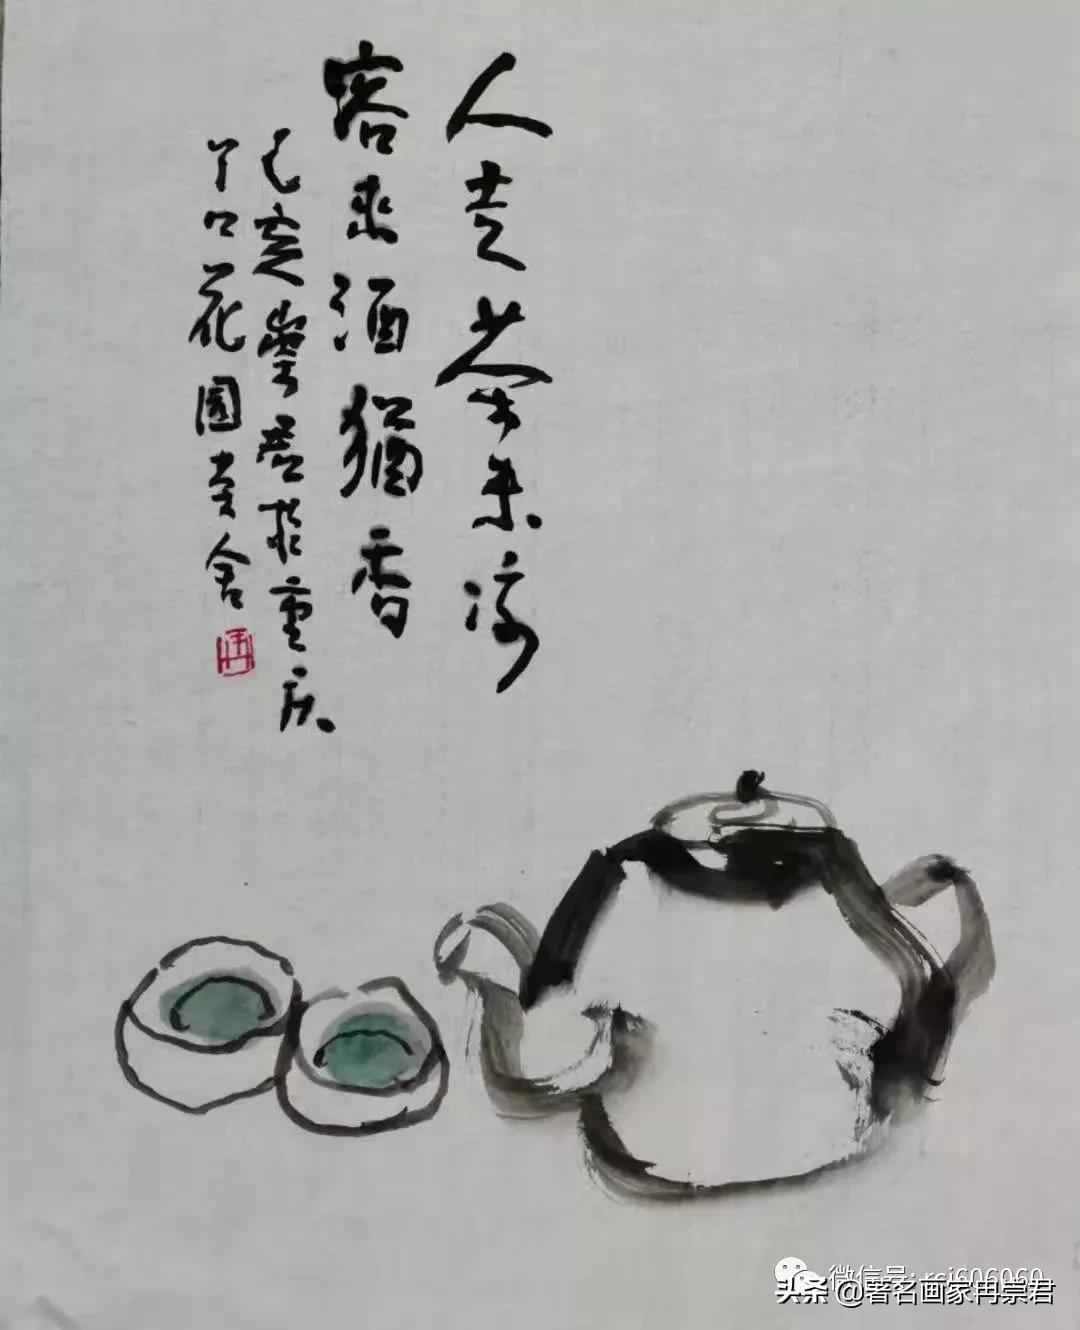 人走茶未凉
客来酒猶香
己亥崇君於重庆
丫口花園寒舍
冉
微信号: rcj606060
头条 @著名画家冉崇君